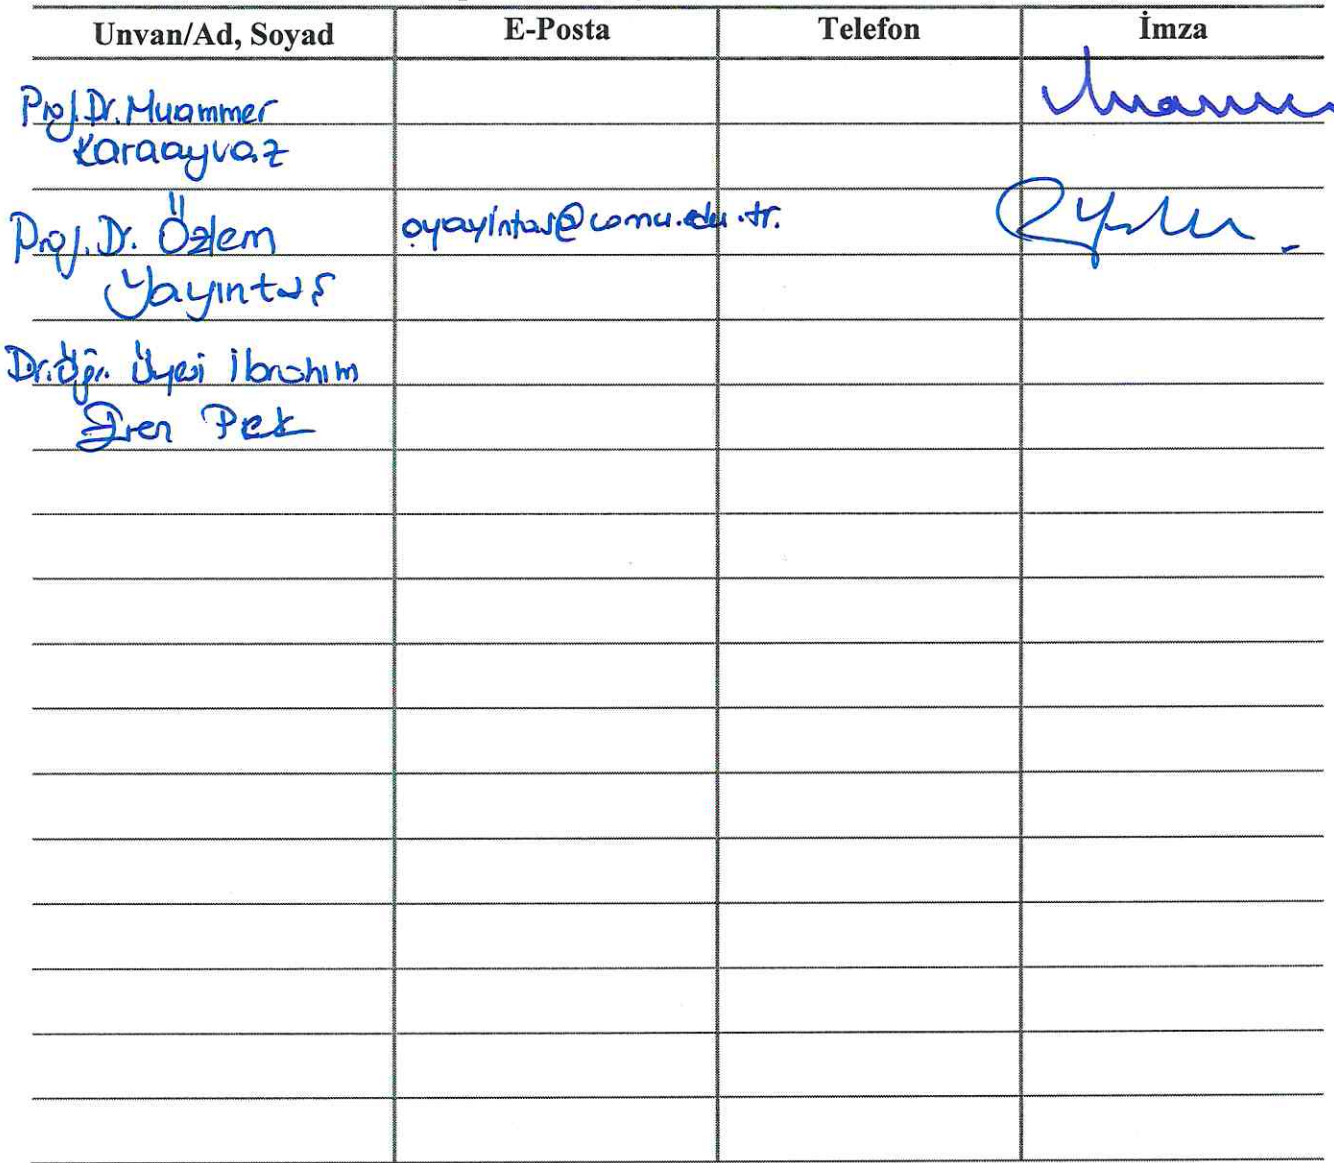 Unvan/Ad, Soyad E-Posta Telefon İmza
Prof. Dr. Muammer
Karaayvaz
Prof. Dr. Özlem oyayintas@comu.edu.tr.
Yayıntaş
Dr. Öğr. Üyesi İbrahim
Eren Pek